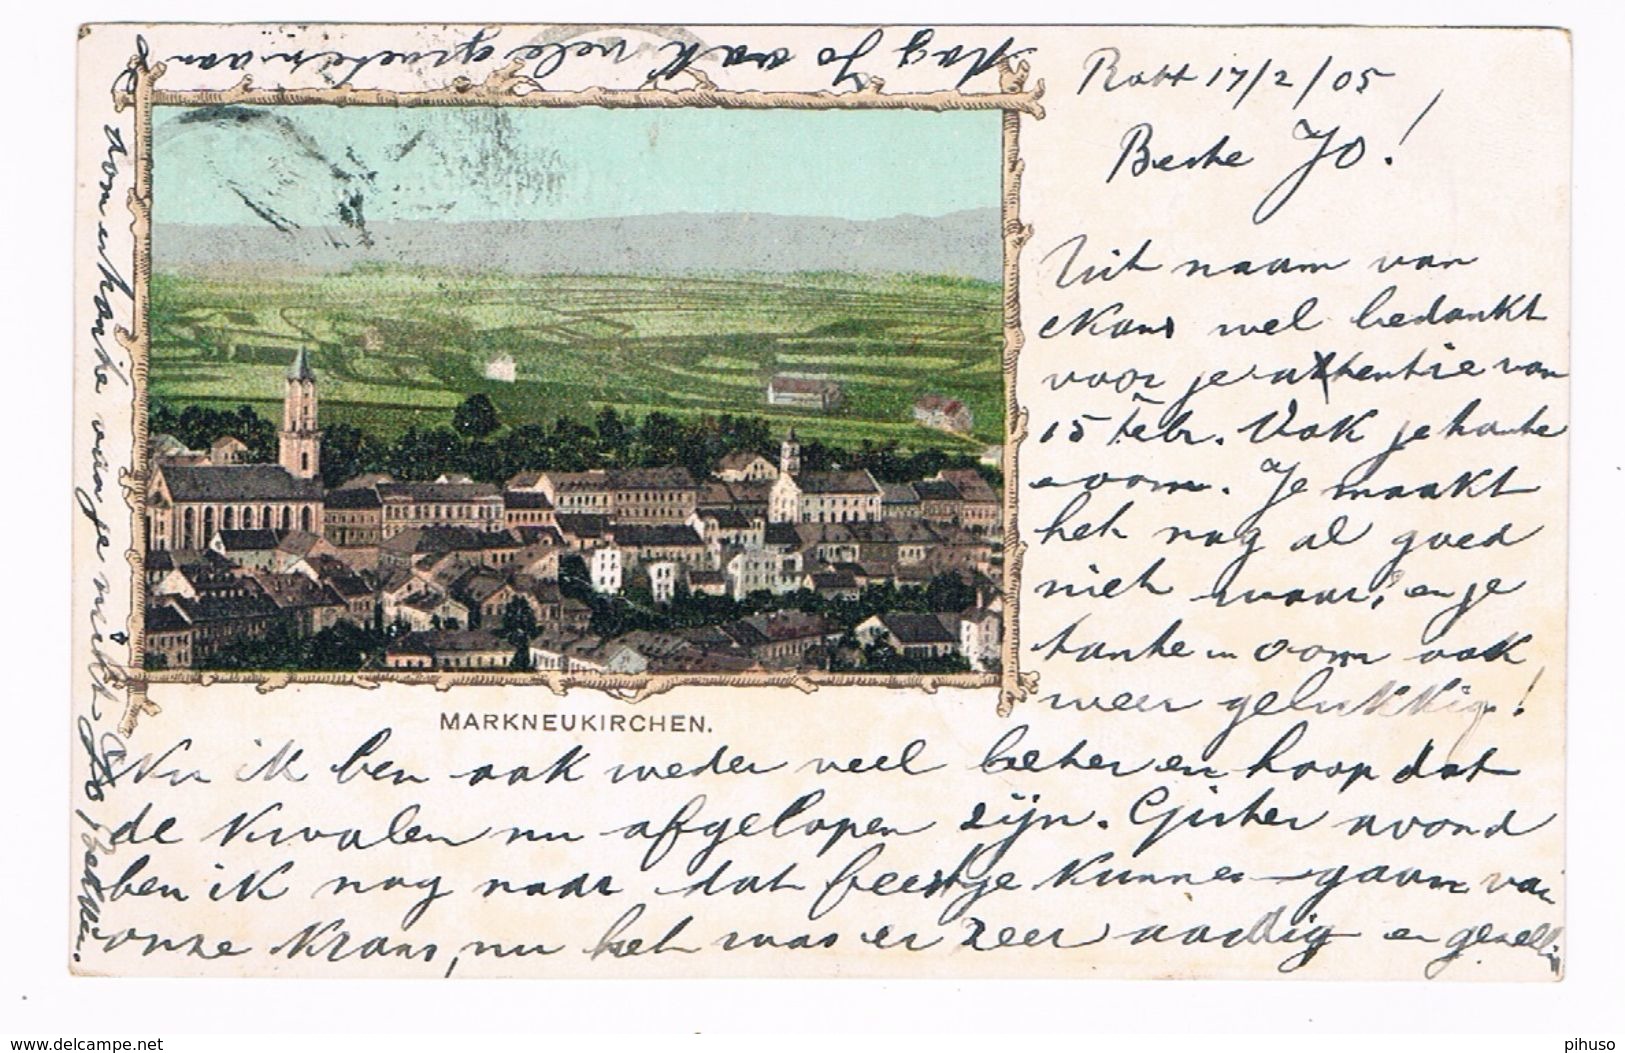 Rott 17/2/05
Beste Jo!
Uit naam van
Kans wel bedankt
voor je attentie van
15 Febr. Ook je tante
en oom. Je maakt
het nog al goed
niet waar, en je
tante en oom ook
weer gelukkig!
MARKNEUKIRCHEN.
Nu ik ben ook weder veel beter en hoop dat
de kwalen nu afgelopen zijn. Gister avond
ben ik nog naar dat feestje kunnen gaan van
onze Krans, nu het was er zeer aardig en gezellig
Dag Jo ook vele groeten aan
oom en tante van je nicht
www.delcampe.net
pihuso